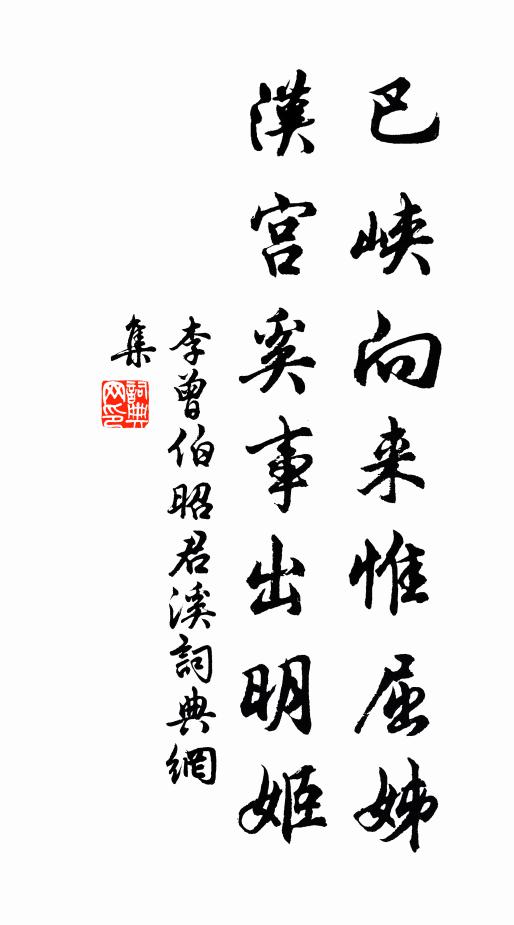 巴峡向来惟屈姊
漢宫奚事出明姬
李曾伯昭君溪詞典網
集
詞典网印